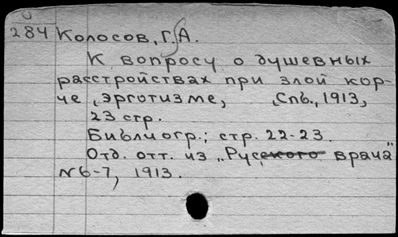 284 Колосов, Г. А.
К вопросу о душевных
расстройствах при злой кор-
че, эрготизме, Спб., 1913,
23 стр.
Библиогр.; стр. 22-23.
Отд. отт. из „Русского врача"
№6-7, 1913.